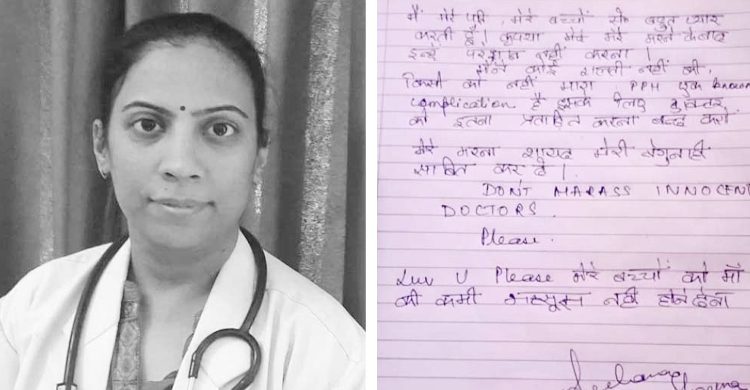 मैं मेरे पति, मेरे बच्चों से बहुत प्यार
करती हूँ। कृपया मेरे मेरे मरने के बाद
इन्हें परेशान नहीं करना।
मैंने कोई गलती नहीं की,
किसी को नहीं मारा PPH एक known
complication है, इसके लिए डॉक्टर
को इतना प्रताड़ित करना बन्द करो.
मेरा मरना शायद मेरी बेगुनाही
साबित कर दे।
DON'T HARASS INNOCENT
DOCTORS.
Please.
Luv U Please मेरे बच्चों को माँ
की कमी महसूस नहीं होने देना